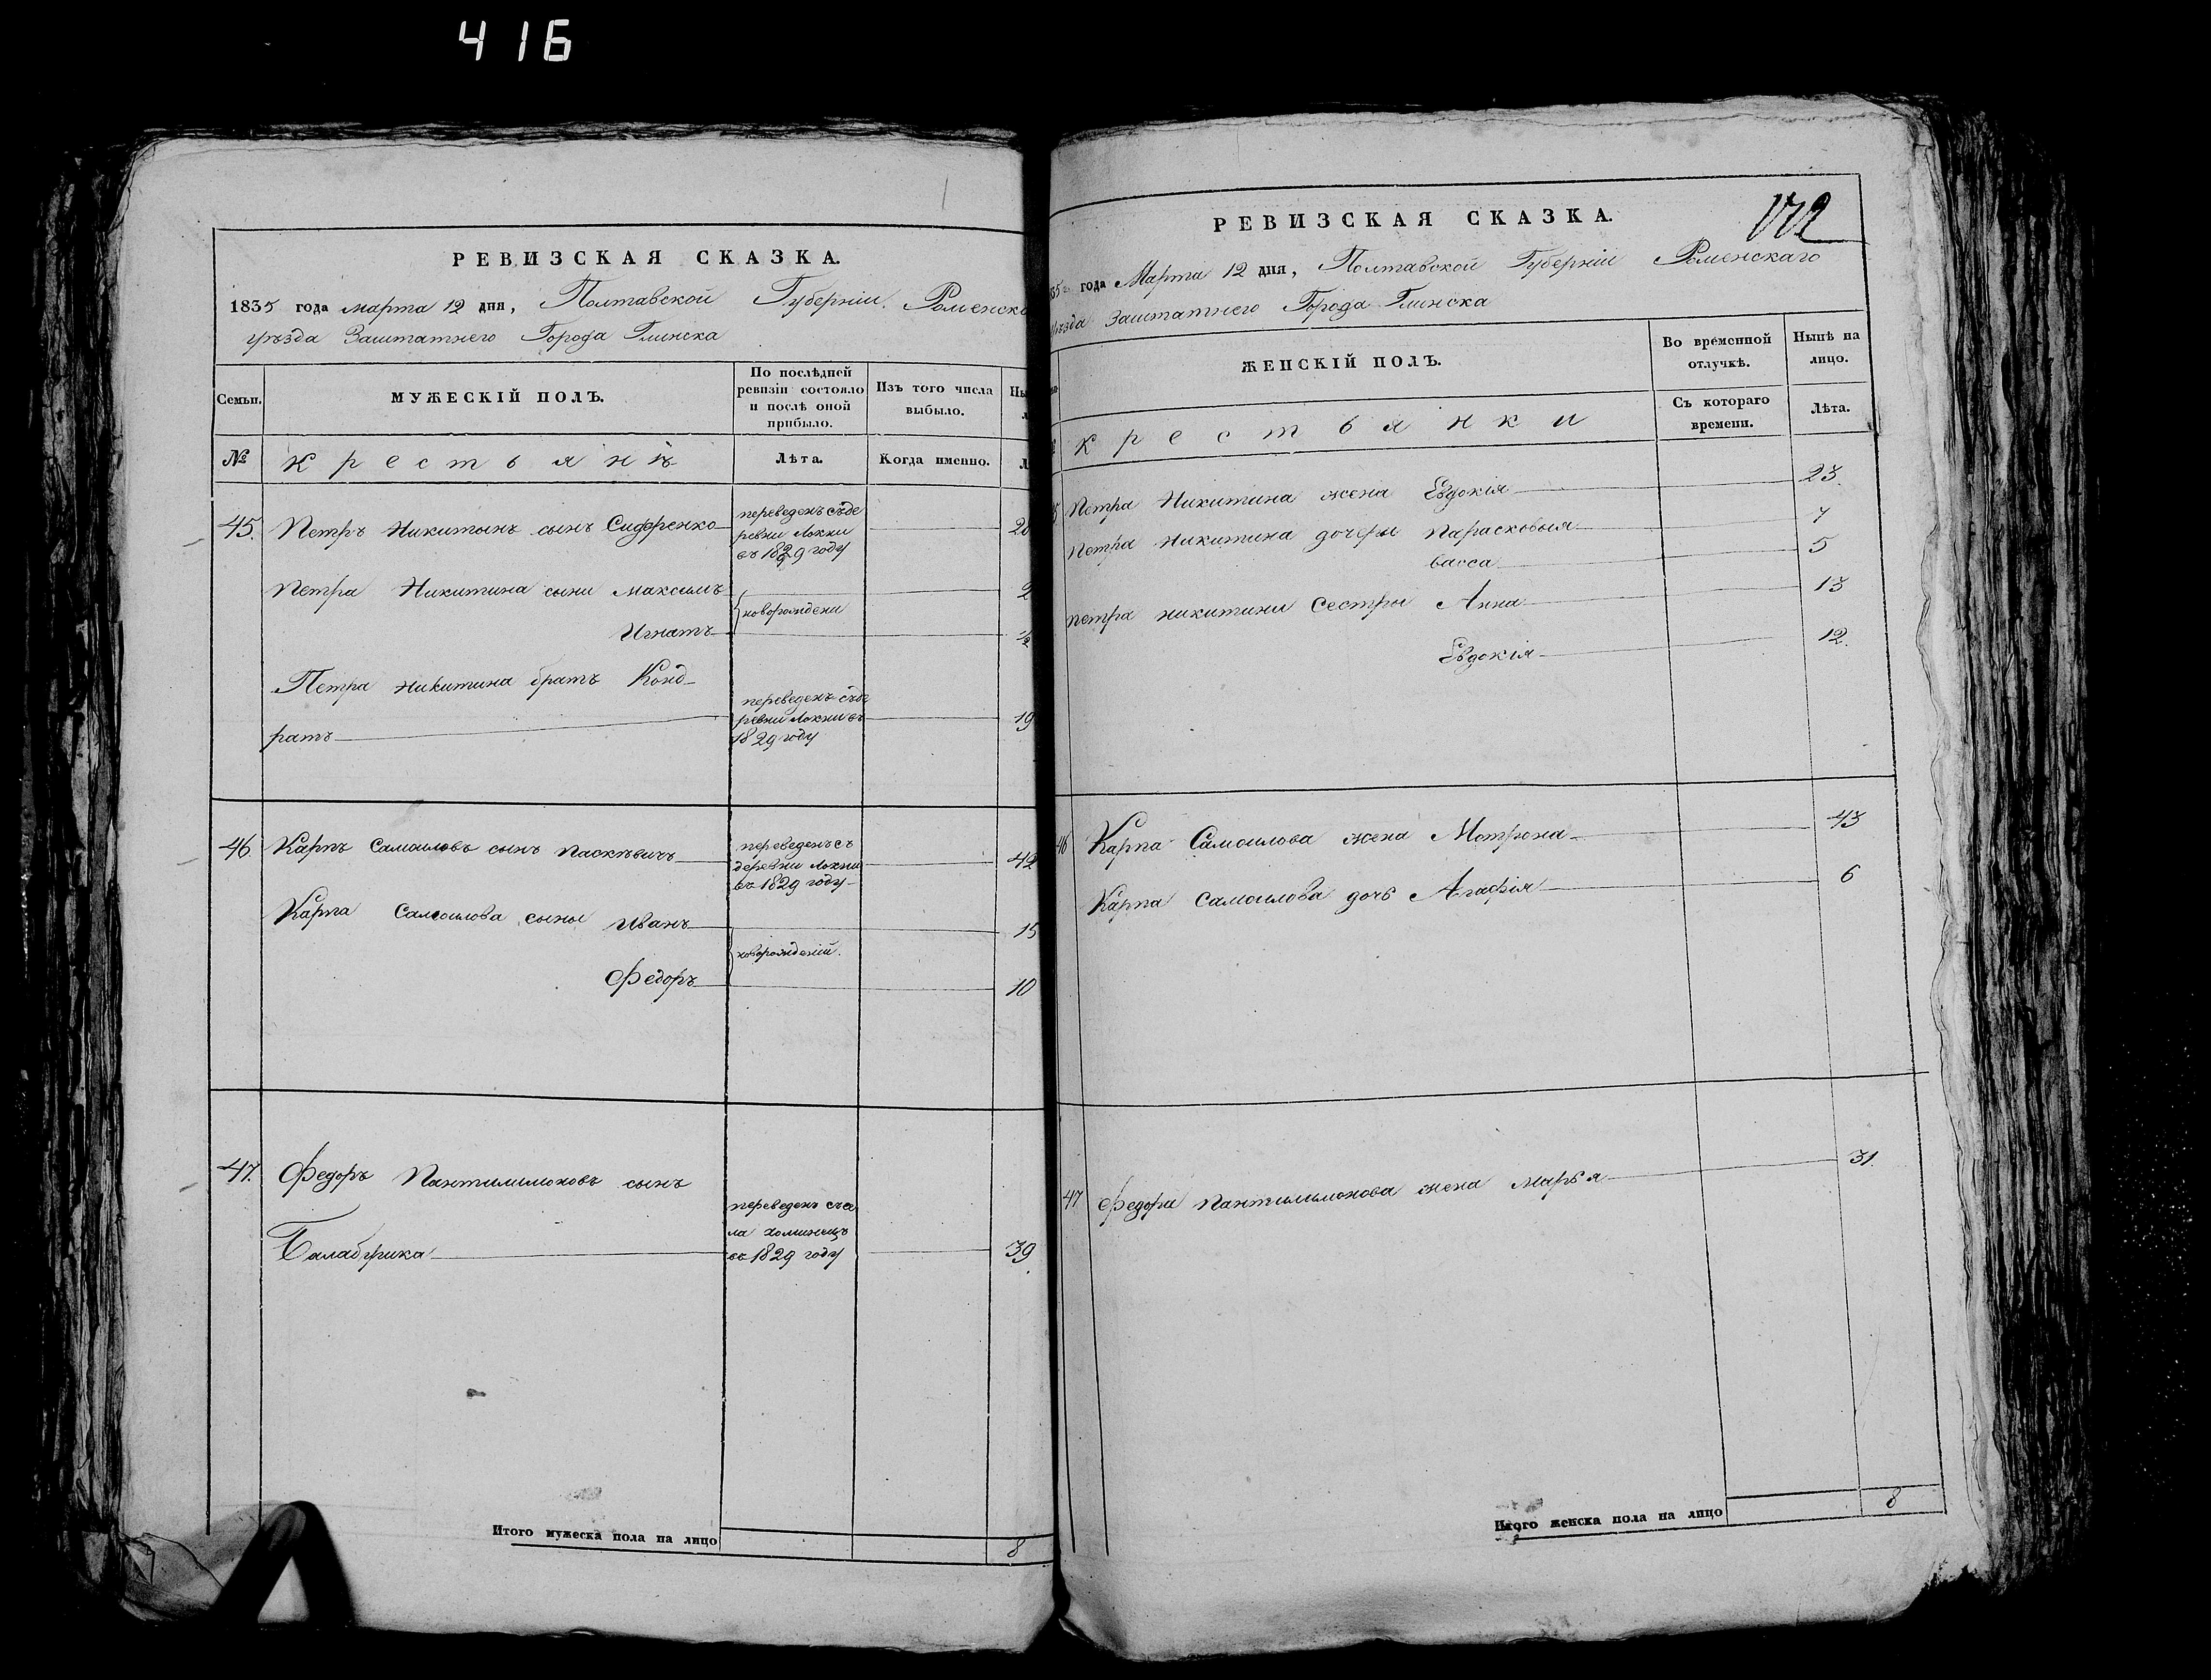 416
РЕВИЗСКАЯ СКАЗКА.
1835 года марта 12 дня, Полтавской Губерніи. Роменска
уѣзда Заштатнего Города Глинска
Семьи.
МУЖЕСКІЙ ПОЛЪ.
По послѣдней
ревизіи состояло
и послѣ оной
прибыло.
Изъ того числа
выбыло.
№
Крестьянъ
Лѣта.
Когда именно.
45. Петръ Никитынъ сынъ Сидоренко
переведенъ съ де
ревни Локни
въ 1829 году
Петра Никитина сыни Максимъ 2
новорождени
Игнатъ 1/2
Петра Никитина братъ Конд-
ратъ
переведенъ съ де
ревни Локни въ
1829 году
19
46. Карпъ Самоиловъ сынъ Паскѣвичъ
переведенъ съ
деревни Локни
въ 1829 году
42
Карпа Самоилова сыны Иванъ 15
новорожденій.
Федоръ 10
47. Федоръ Пантилимоновъ сынъ
Балабушка
переведенъ съ се
ла Хоминецъ
въ 1829 году
39
Итого мужеска пола на лицо 8
РЕВИЗСКАЯ СКАЗКА.
172
35 года Марта 12 дня, Полтавской Губерніи Роменскаго
уѣзда Заштатнего Города Глинска
ЖЕНСКІЙ ПОЛЪ.
Во временной
отлучкѣ.
Нынѣ на
лицо.
Крестьянки
Съ котораго
времени.
Лѣта.
Петра Никитина жена Евдокія 23.
Петра Никитина дочеры Парасковья 7
Васса 5
Петра Никитини Сестры Анна 13
Евдокія 12.
46 Карпа Самоилова жена Мотрона 43
Карпа Самоилова дочь Агафія 6
47 Федора Пантилимонова жена Марья 31.
Итого женска пола на лицо 8